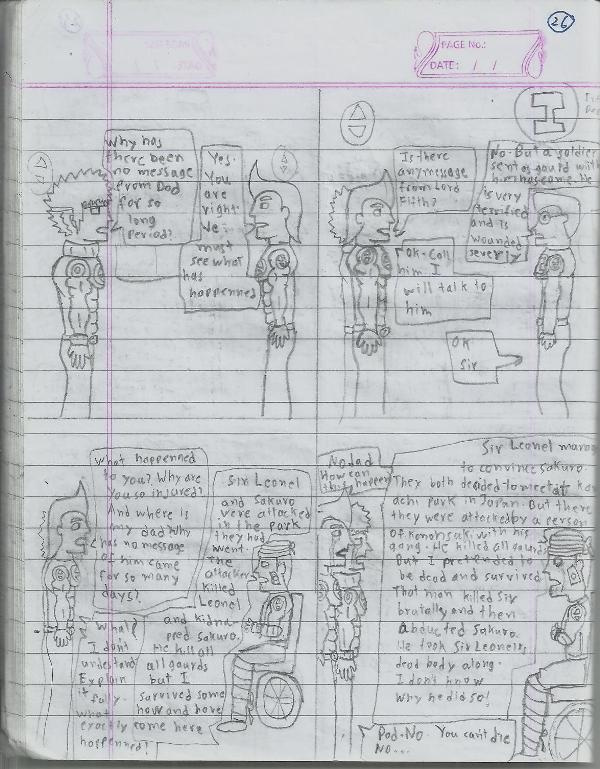 26
PAGE No.:
DATE: / /
Why has
there been
no message
from Dad
for so
long
period?
Yes.
You
are
right.
We
must
see what
has
happenned
Is there
any message
from Lord
Fifth?
No. But a soldier
sent as gaurd with
him has come. He
is very
terrified
and is
wounded
severely
OK. Call
him. I
will talk to
him
OK
Sir
What happenned
to you? Why are
you so injured?
And where is
my dad Why
has no message
of him came
for so many
days?
Sir Leonel
and Sakura
were attacked
in the park
they had
went.
The
attacker
killed
Leonel
and kidna-
pped Sakura.
He kill all
gaurds
but I
survived some
how and have
come here
What?
I don't
understand
Explain
it fully.
What
exactly
happenned?
No dad
How can
this happen
Sir Leonel
to convince Sakura.
They both decided to meet at
achi park in Japan. But there
they were attacked by a person
of Konohsuki with his
gang. He killed all gaurds
But I pretended to
be dead and survived
That man killed Sir
brutally and then
Abducted Sakura.
He took Sir Leonel's
dead body along.
I don't know
Why he did so!
Dad. No. You can't die
No...